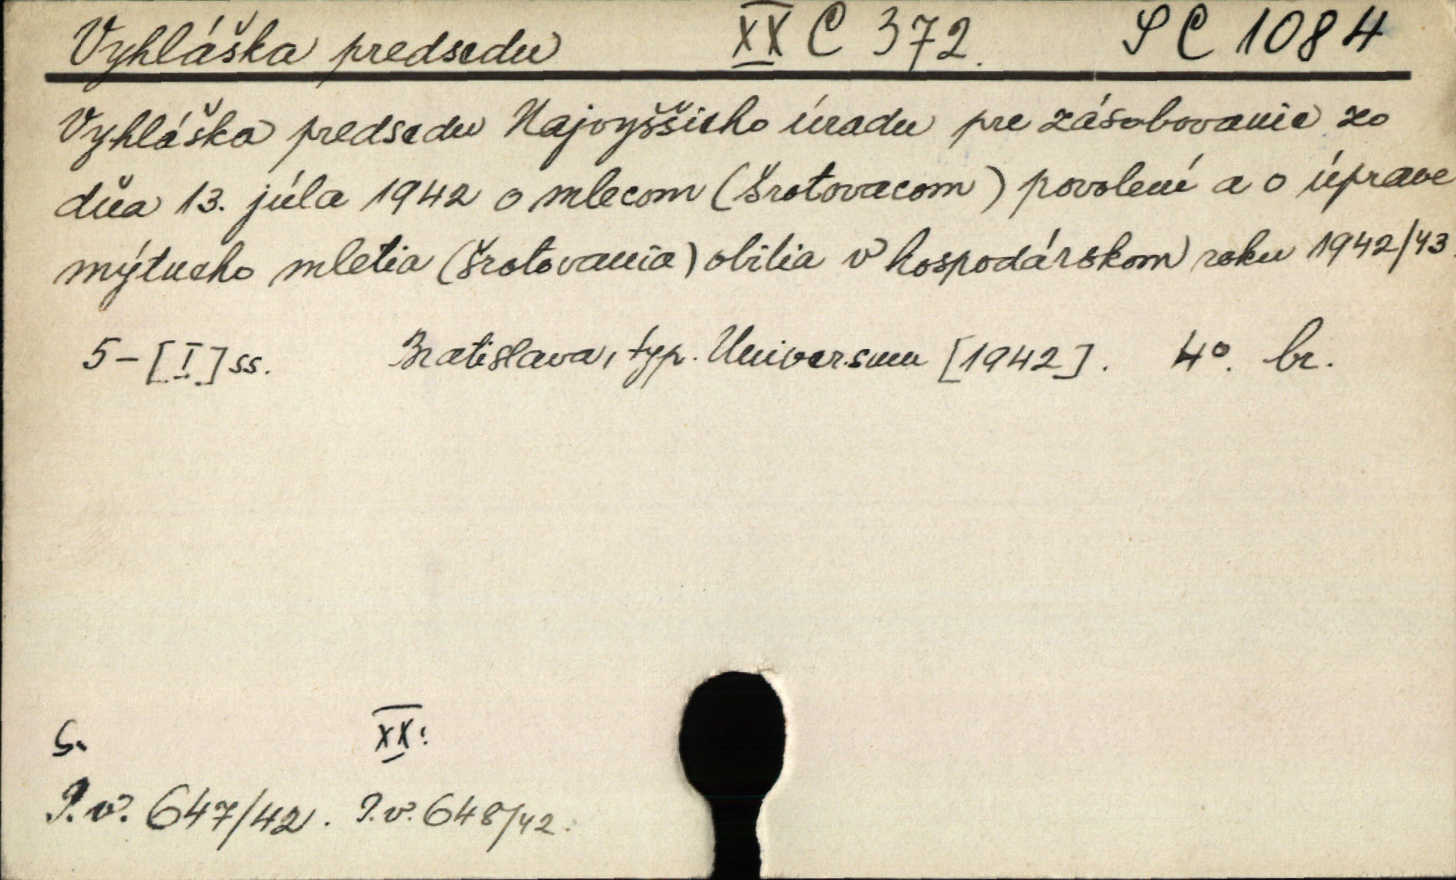 Vyhláška predsedu XX C 372. SC 1084
Vyhláška predsedu Najvyššieho úradu pre zásobovanie zo
dňa 13. júla 1942 o mlecom (šrotovacom) povolení a o úprave
mýtneho mletia (šrotovania) obilia v hospodárskom roku 1942/43.
5-[I] ss. Bratislava, typ. Universum [1942]. 4°. br.
S. XX.
P.v. 647/42. P.v. 648/42.